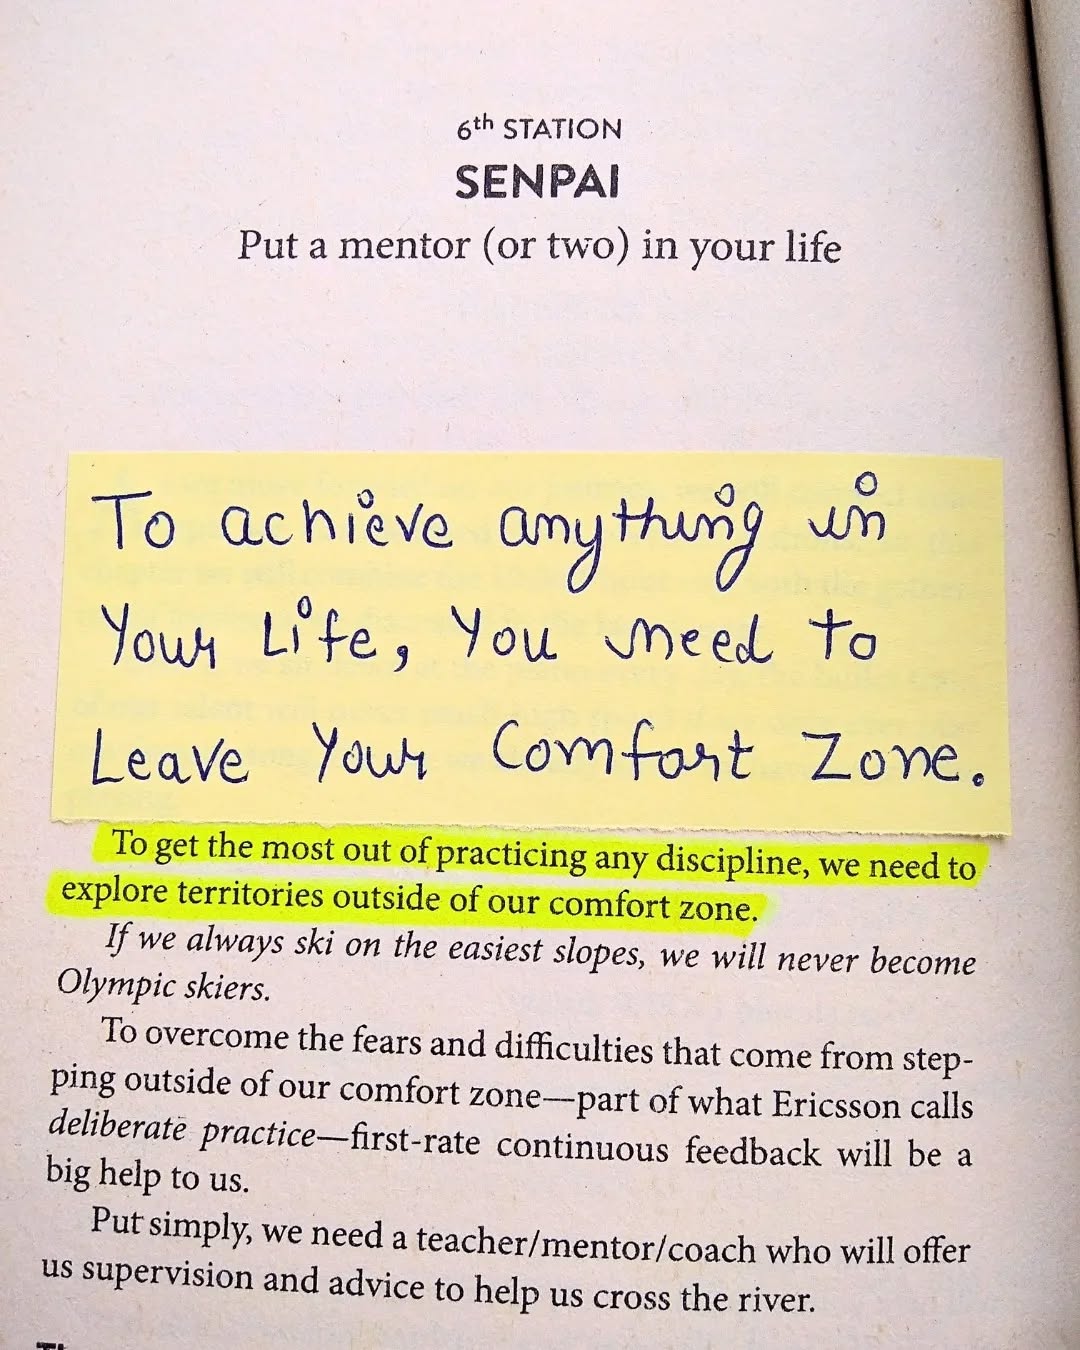 6th STATION
SENPAI
Put a mentor (or two) in your life
To achieve anything in
Your Life, You need to
Leave Your Comfort Zone.
To get the most out of practicing any discipline, we need to
explore territories outside of our comfort zone.
If we always ski on the easiest slopes, we will never become
Olympic skiers.
To overcome the fears and difficulties that come from step-
ping outside of our comfort zone—part of what Ericsson calls
deliberate practice—first-rate continuous feedback will be a
big help to us.
Put simply, we need a teacher/mentor/coach who will offer
us supervision and advice to help us cross the river.